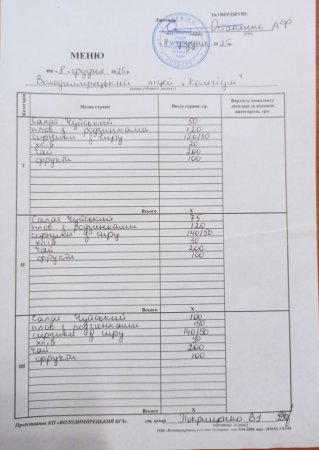 ЗАТВЕРДЖУЮ:
МЕНЮ
на "8" грудня 2025р.
Володимирецький ліцей "Колегіум"
(назва учбового закладу)
Категорія Назва страви Вихід страви, гр. Вартість комплексу
категорією, грн.
I
Салат Чуйський 50
плов з родзинками 120
сирники з сиру 120/30
хліб 20
чай 200
фрукти 100
Всього X
II
Салат Чуйський 75
плов з родзинками 120
сирники з сиру 140/50
хліб 30
чай 200
фрукти 100
Всього X
III
Салат Чуйський 100
плов з родзинками 150
сирники з сиру 140/50
хліб 50
чай 200
фрукти 100
Всього X
Представник КП «ВОЛОДИМИРЕЦЬКИЙ КГХ» ст. кухар